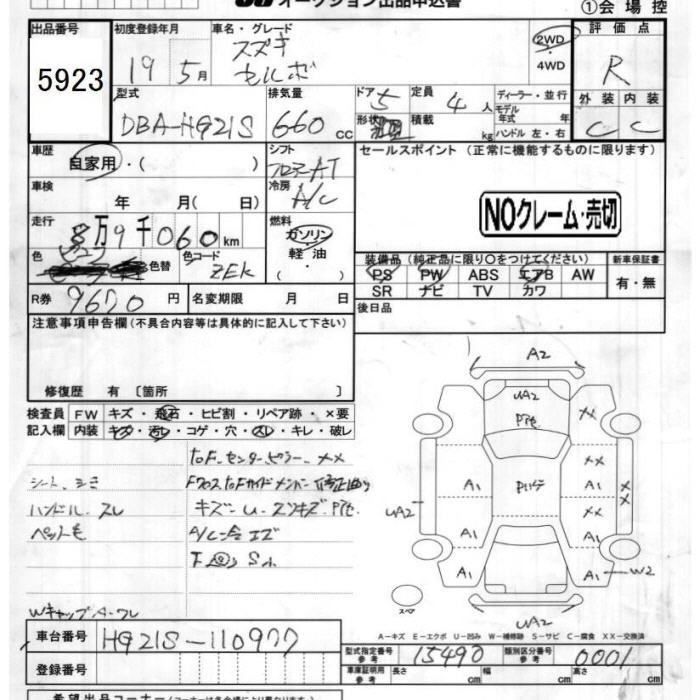 オークション出品申込書
①会場控
出品番号 5923
初度登録年月 19年 5月
車名・グレード スズキ セルボ
2WD ・ 4WD
評価点 R
外装 C 内装 C
型式 DBA-HG21S
排気量 660 cc
ドア 5
形状
定員 4人
積載 kg
ディーラー・並行
モデル年式 年
ハンドル 左・右
車歴 自家用・( )
シフト フロアAT
セールスポイント (正常に機能するものに限ります)
車検 年 月( 日)
冷房 A/C
NOクレーム・売切
走行 8万9千060km
燃料 ガソリン・軽油・( )
色 色替 色コード ZEK
装備品 (純正品に限り○をつけてください)
PS PW ABS エアB AW
SR ナビ TV カワ
新車保証書 有・無
R券 9670円
名変期限 月 日
後日品
注意事項申告欄(不具合内容等は具体的に記入して下さい)
修復歴 有 〔箇所 〕
検査員記入欄
FW キズ・飛石・ヒビ割・リペア跡・×要
内装 キズ・汚レ・コゲ・穴・スレ・キレ・破レ
シート、シミ
ハンドル、スレ
ペット毛
toF.センターピラー.××
A/C
A2
UA2
××
××
A1
A1
××
××
UA2
A1
A1
A1
A1
W2
UA2
スペア
A-キズ E-エクボ U-凹み W-補修跡 S-サビ C-腐食 XX-交換済
車台番号 HG21S-110977
登録番号
型式指定番号 参考 15490
類別区分番号 参考 0001
車庫証明用 参考 長さ cm 幅 cm 高さ cm
希望出品コーナー